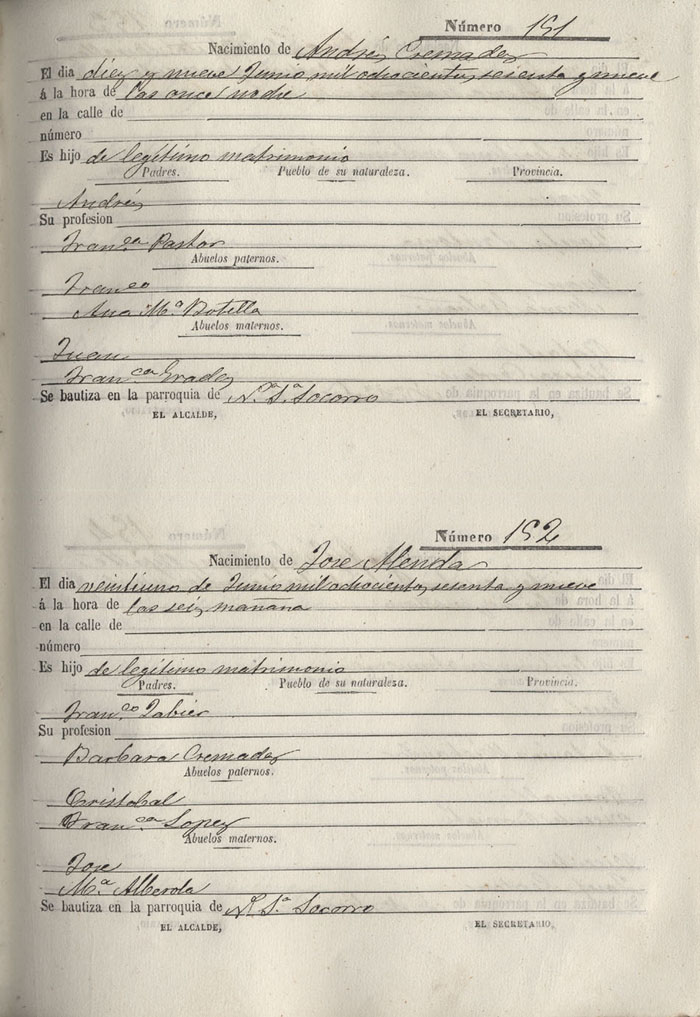 Número 151
Nacimiento de Andrés Cremades
El dia diez y nueve Junio mil ochocientos sesenta y nueve
á la hora de las once noche
en la calle de
número
Es hijo de legítimo matrimonio
Padres. Pueblo de su naturaleza. Provincia.
Andrés
Su profesion
Fran.ca Pastor
Abuelos paternos.
Fran.co
Ana M.a Botella
Abuelos maternos.
Juan
Fran.ca Grades
Se bautiza en la parroquia de N.a S.a Socorro
EL ALCALDE, EL SECRETARIO,
Número 152
Nacimiento de Jose Alenda
El dia veintiuno de Junio mil ochocientos sesenta y nueve
á la hora de las seis mañana
en la calle de
número
Es hijo de legítimo matrimonio
Padres. Pueblo de su naturaleza. Provincia.
Fran.co Jabier
Su profesion
Barbara Cremades
Abuelos paternos.
Cristobal
Fran.ca Lopez
Abuelos maternos.
Jose
M.a Alberola
Se bautiza en la parroquia de N.a S.a Socorro
EL ALCALDE, EL SECRETARIO,